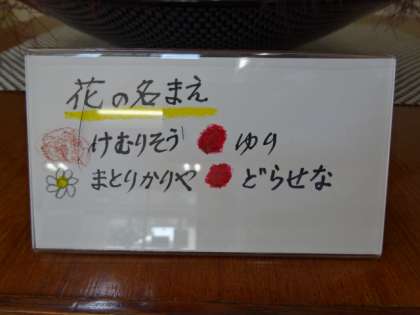 花の名まえ
けむりそう ゆり
まとりかりや どらせな